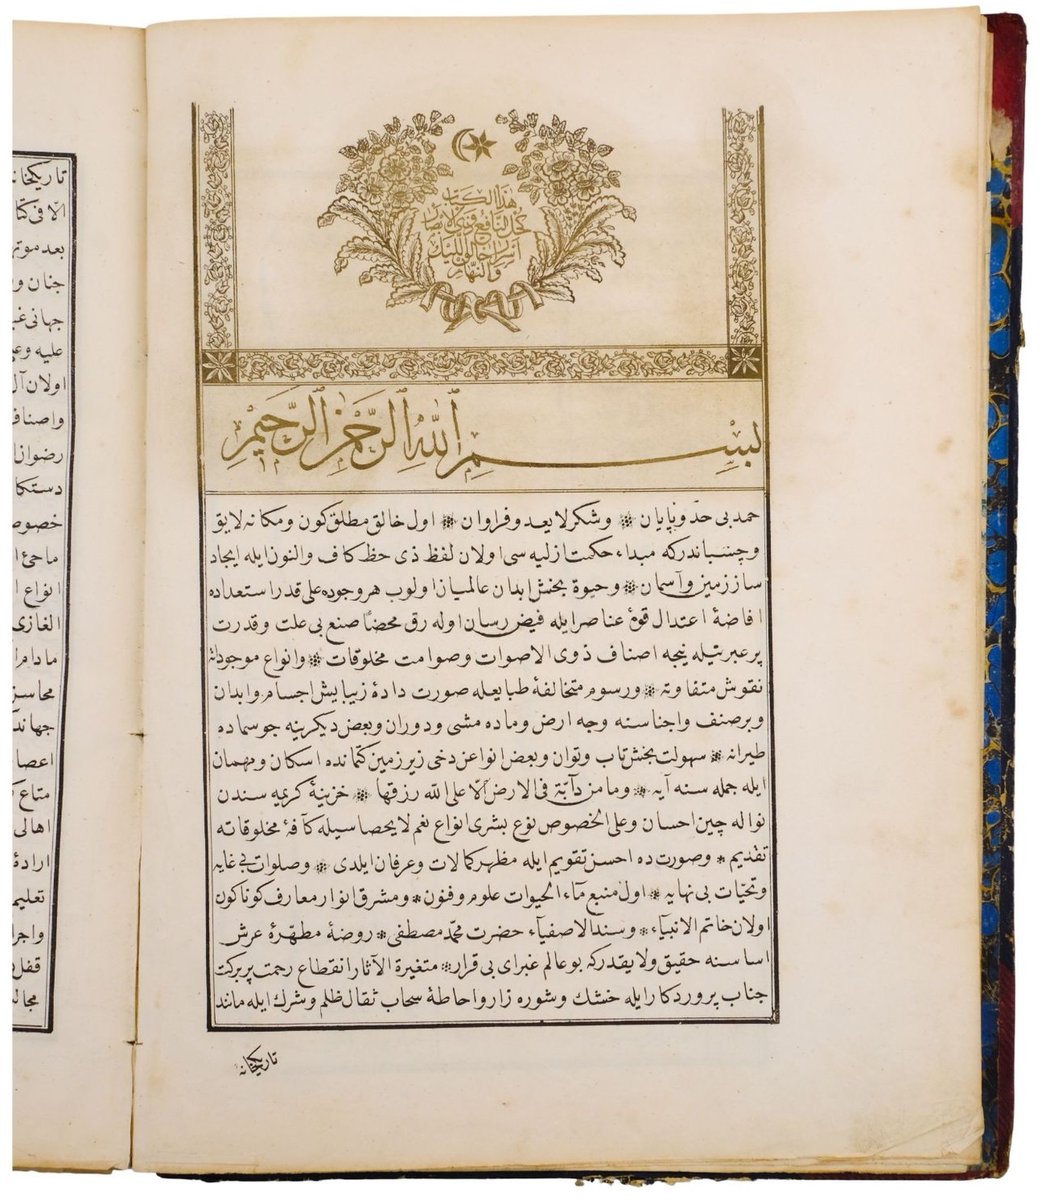 هذا الكتاب
كحل النافع فى ذوى الابصار
اسرار خالق الليل
والنهار
بسم الله الرحمن الرحيم
حمد بى حد و پايان * وشكر لا يعد و فراوان * اول خالق مطلق كون و مكانه لايق
وچسباندركه مبداء حكمت ازليه سى اولان لفظ ذى حظ كاف والنون ايله ايجاد
ساز زمين و آسمان * وحيوة بخش ابدان عالميان اولوب هر وجوده على قدر استعداده
افاضهٔ اعتدال قوهٔ عناصر ايله فيض رسان اوله رق محضا صنع بى علت وقدرت
پر عبرتيله نيجه اصناف ذوى الاصوات وصوامت مخلوقات * وانواع موجوداته
نقوش متفاوته * ورسوم متخالفهٔ طبايعله صورت دادهٔ زيبايش اجسام وابدان
وبر صنف واجناسنه وجه ارض وماده مشى ودوران وبعض ديكرينه جو سماده
طيرانه * سهولت بخش تاب وتوان وبعض انواعن دخى زير زمين كتمانده اسكان ومهمان
ايله جمله سنه آيه * وما من دآبة فى الارض الا على الله رزقها * خزينهٔ كريمه سندن
نواله چين احسان وعلى الخصوص نوع بشرى انواع نعم لا يحصا سيله كآفهٔ مخلوقاته
تقديم * وصورت ده احسن تقويم ايله مظهر كمالات وعرفان ايلدى * وصلوات بى غايه
وتحيات بى نهايه * اول منبع مآء الحيوات علوم وفنون * ومشرق انوار معارف كوناكون
اولان خاتم الانبيآء * وسند الاصفيآء حضرت محمد مصطفى * روضهٔ مطهرهٔ عرش
اساسنه حقيق ولايقدركه بو عالم غبراى بى قرار * متغيرة الآثار انقطاع رحمت پر بركت
جناب پروردكار ايله خشك وشوره زار واحاطهٔ سحاب ثقال ظلم وشرك ايله مانند
تاريكخانه
تاريكخانه
الا فى كتا
بعد موتها
جنان و
جهانى غب
عليه وع
اولان آل
واصناف
رضوان ا
دستكا
خصوص
ماحئ ا
انواع ا
الغازى
مادام ا
محاسن
جهاند
اعصا
متاع
اهالى
ارادهٔ
تعليم
واجرا
قفل
مجال